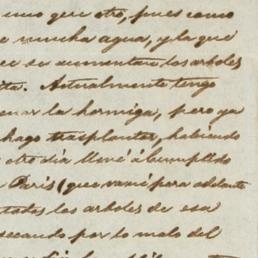 uno que otro, pues como
mucha agua, y la que
se aumentan los arboles
Actualmente tengo
la hormiga, pero ya
hago trasplantar, habiendo
otro dia llevé á
Paris (que vamé para adelante
todos los arboles de esa
secando por lo malo del